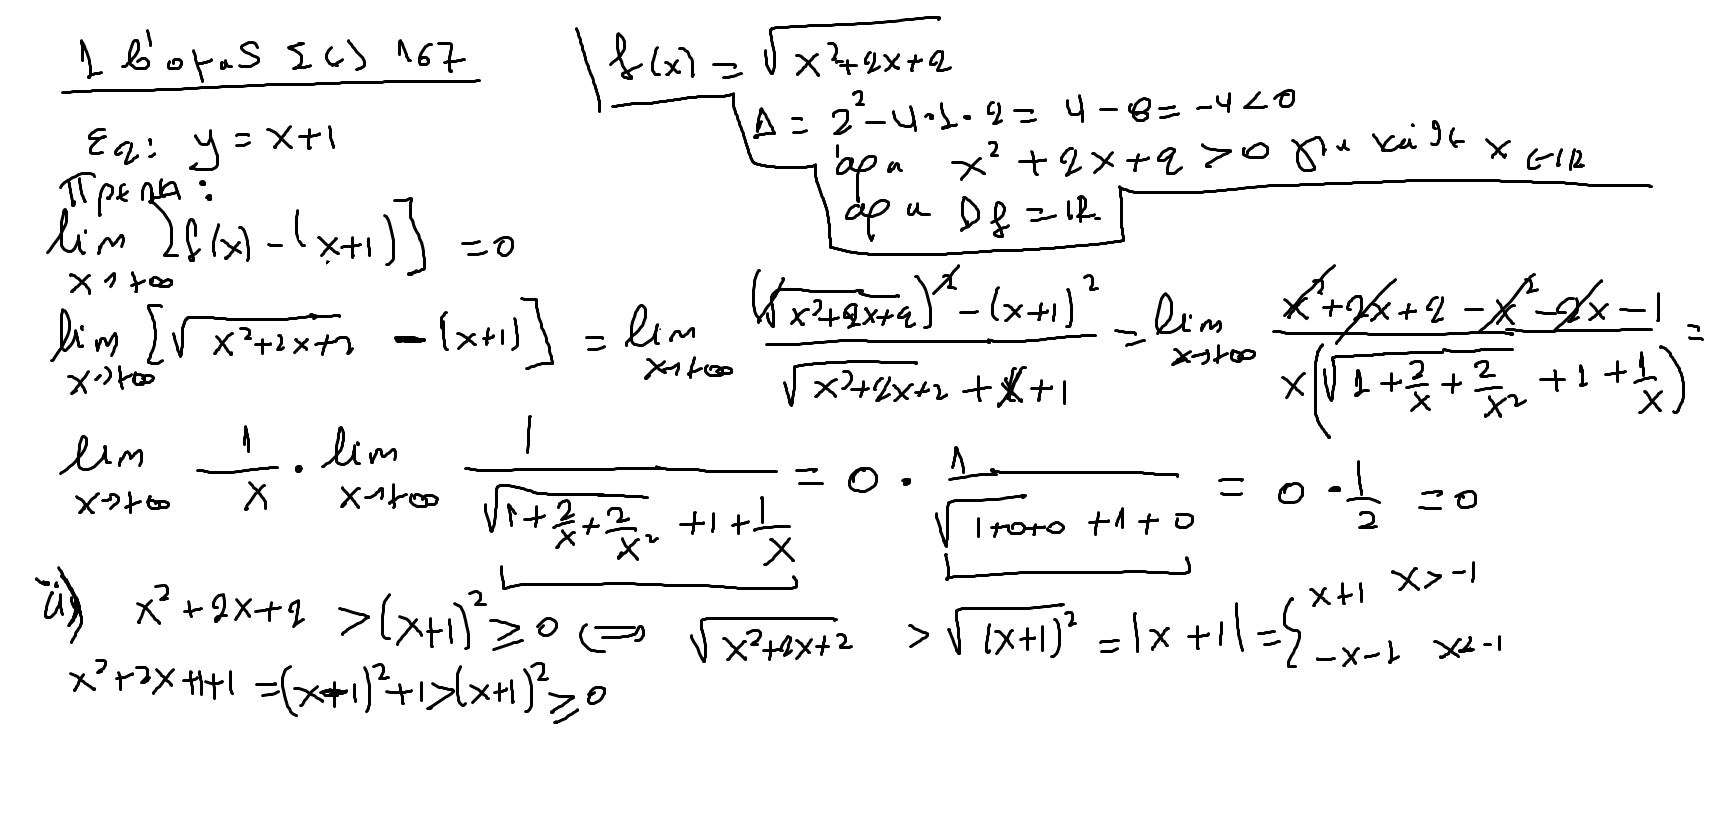 1 β' ομας Σελ 167
f(x) = √(x²+2x+2)
Δ = 2²-4·1·2 = 4-8 = -4 < 0
άρα x²+2x+2 > 0 για κάθε x ∈ IR
άρα Df = IR.
εq: y = x+1
Πρέπει:
lim x→+∞ [f(x) - (x+1)] = 0
lim x→+∞ [√(x²+2x+2) - (x+1)] = lim x→+∞ ((√(x²+2x+2))² - (x+1)²)/(√(x²+2x+2) + x + 1) = lim x→+∞ (x²+2x+2-x²-2x-1)/(x(√(1+2/x+2/x²) + 1 + 1/x)) =
lim x→+∞ 1/x · lim x→+∞ 1/(√(1+2/x+2/x²) + 1 + 1/x) = 0 · 1/(√(1+0+0) + 1 + 0) = 0 · 1/2 = 0
ii) x²+2x+2 > (x+1)² ≥ 0 ⇔ √(x²+2x+2) > √(x+1)² = |x+1| = { x+1 x>-1
-x-1 x<-1
x²+2x+1+1 = (x+1)²+1 > (x+1)² ≥ 0